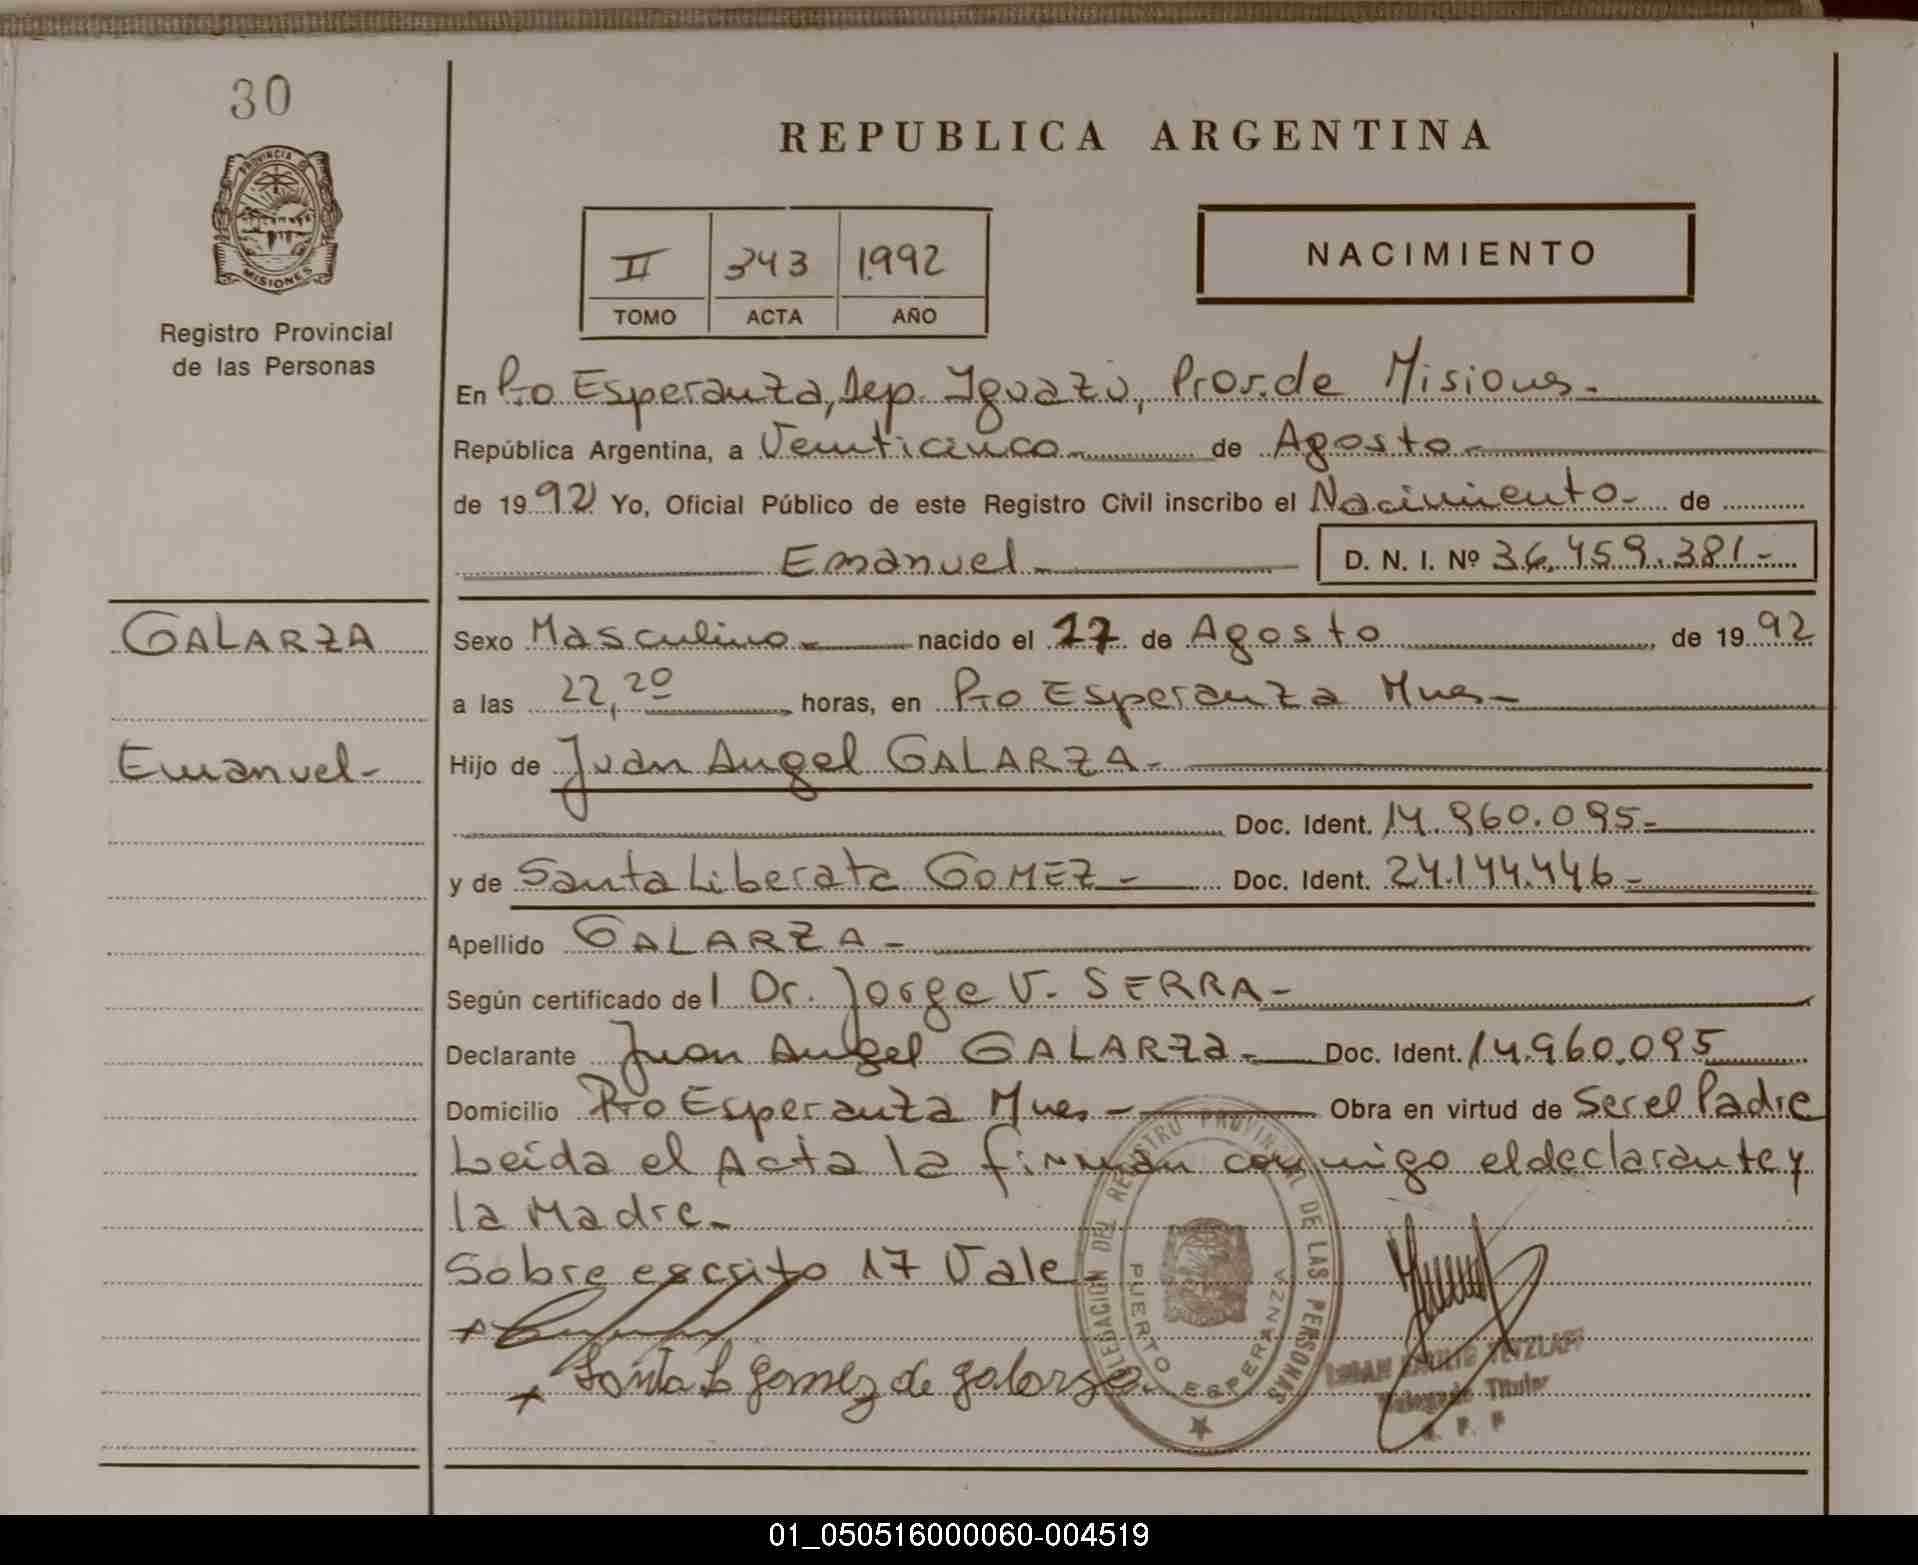 30
PROVINCIA DE
MISIONES
Registro Provincial
de las Personas
REPUBLICA ARGENTINA
II 343 1992
TOMO ACTA AÑO
NACIMIENTO
En Pto Esperanza, Dep. Iguazú, Prov. de Misiones.-
República Argentina, a Veinticinco de Agosto-
de 1992 Yo, Oficial Público de este Registro Civil inscribo el Nacimiento- de
Emanuel- D. N. I. Nº 36.459.381.-
GALARZA
Emanuel-
Sexo Masculino- nacido el 17 de Agosto de 1992
a las 22,20 horas, en Pto Esperanza Mnes-
Hijo de Juan Angel GALARZA-
Doc. Ident. 14.960.095-
y de Santa Liberata GOMEZ- Doc. Ident. 24.144.446-
Apellido GALARZA-
Según certificado del Dr. Jorge V. SERRA-
Declarante Juan Angel GALARZA- Doc. Ident. 14.960.095
Domicilio Pto Esperanza Mnes- Obra en virtud de Ser el Padre
Leída el Acta la firman conmigo el declarante y
la Madre-
Sobre escrito 17 Vale-
Santa L Gomez de Galarza
DELEGACION DEL REGISTRO PROVINCIAL DE LAS PERSONAS
PUERTO ESPERANZA
TETZLAFF
Delegado Titular
01_050516000060-004519